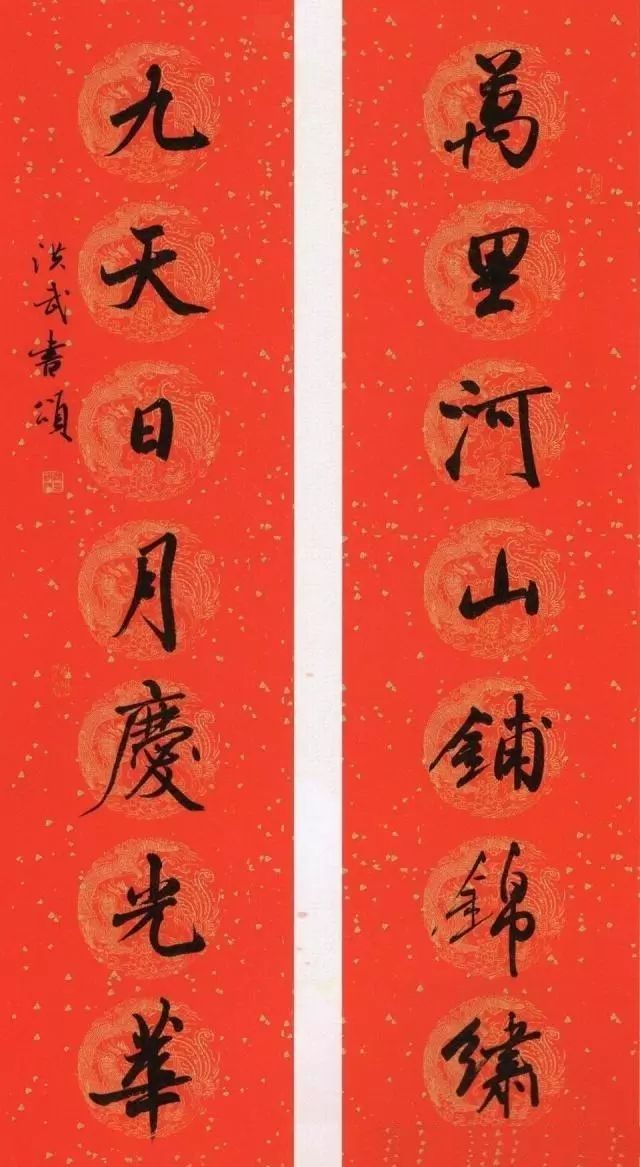 萬里河山鋪錦繡
九天日月慶光華
洪武書頌